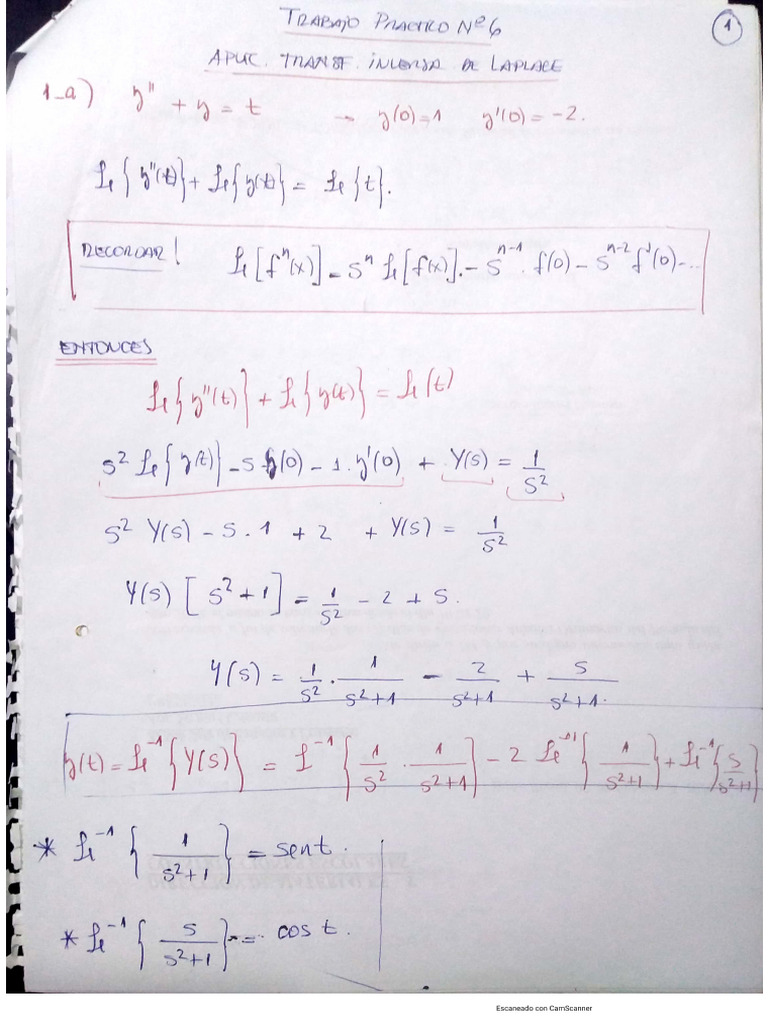 1
TRABAJO PRACTICO Nº6
APLIC. TRANSF. INVERSA DE LAPLACE
1_a) y'' + y = t → y(0)=1 y'(0) = -2.
ℒ{y''(t)} + ℒ{y(t)} = ℒ{t}.
RECORDAR! ℒ[fⁿ(x)] = Sⁿ ℒ[f(x)].- Sⁿ⁻¹. f(0) - Sⁿ⁻² f'(0) - ...
ENTONCES
ℒ{y''(t)} + ℒ{y(t)} = ℒ(t)
S² ℒ{y(t)} - S y(0) - 1. y'(0) + Y(S) = 1/S²
S² Y(S) - S . 1 + 2 + Y(S) = 1/S²
Y(S) [S²+1] = 1/S² - 2 + S.
Y(S) = 1/S² . 1/(S²+1) - 2/(S²+1) + S/(S²+1).
y(t) = ℒ⁻¹{Y(S)} = ℒ⁻¹{1/S² . 1/(S²+1)} - 2 ℒ⁻¹{1/(S²+1)} + ℒ⁻¹{S/(S²+1)}
* ℒ⁻¹{1/(S²+1)} = sent.
* ℒ⁻¹{S/(S²+1)} = cos t.
Escaneado con CamScanner